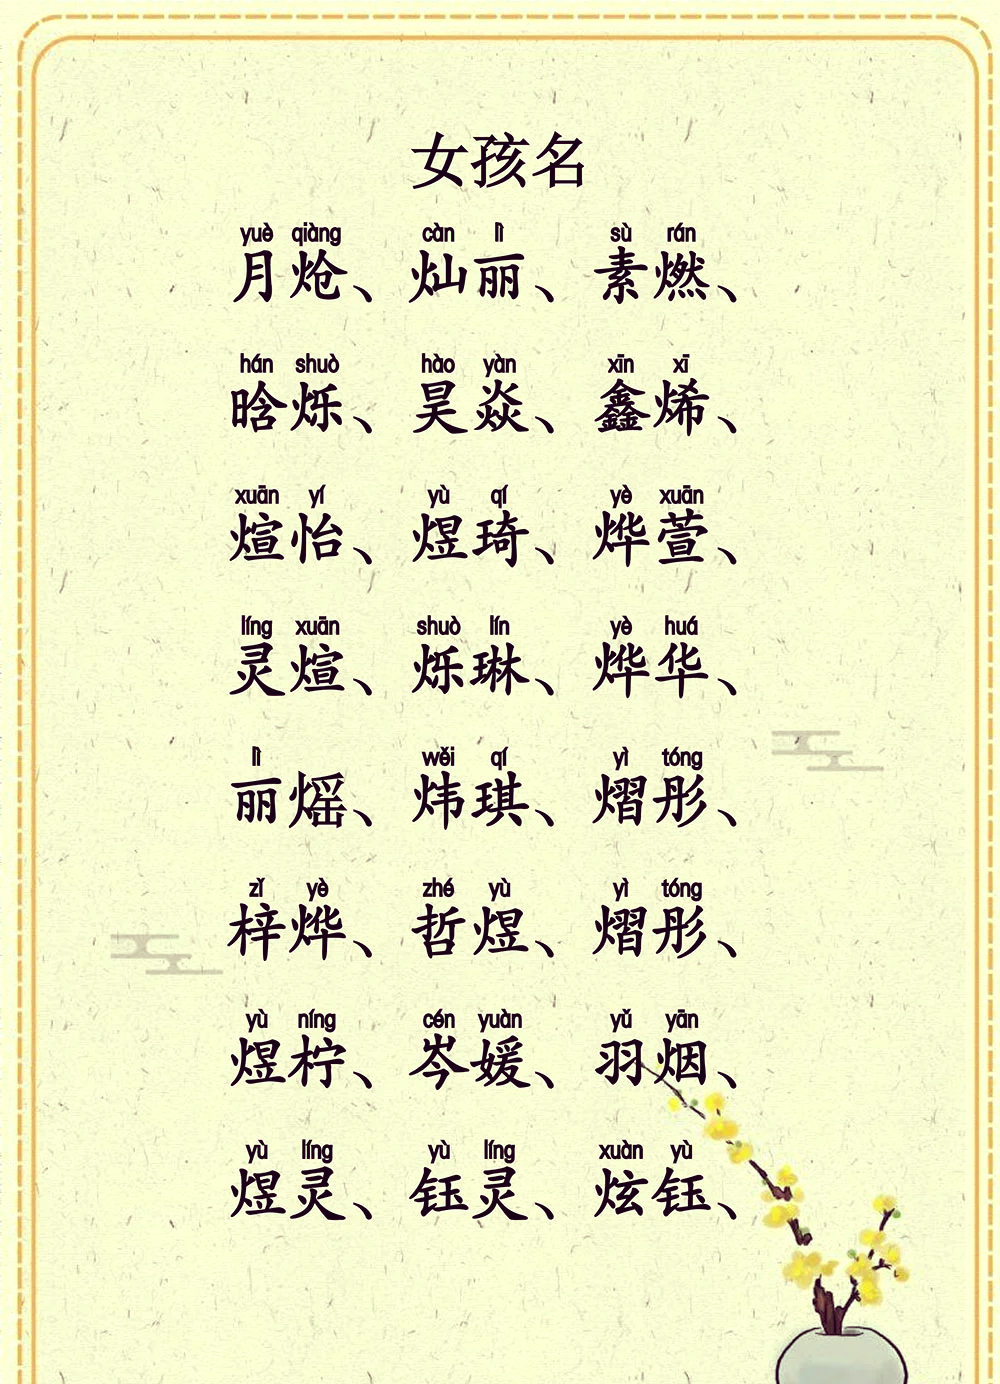 女孩名
yuè qiàng càn lì sù rán
月炝、灿丽、素燃、
hán shuò hào yàn xīn xī
晗烁、昊焱、鑫烯、
xuān yí yù qí yè xuān
煊怡、煜琦、烨萱、
líng xuān shuò lín yè huá
灵煊、烁琳、烨华、
lì wěi qí yì tóng
丽熎、炜琪、熠彤、
zǐ yè zhé yù yì tóng
梓烨、哲煜、熠彤、
yù níng cén yuàn yǔ yān
煜柠、岑媛、羽烟、
yù líng yù líng xuàn yù
煜灵、钰灵、炫钰、